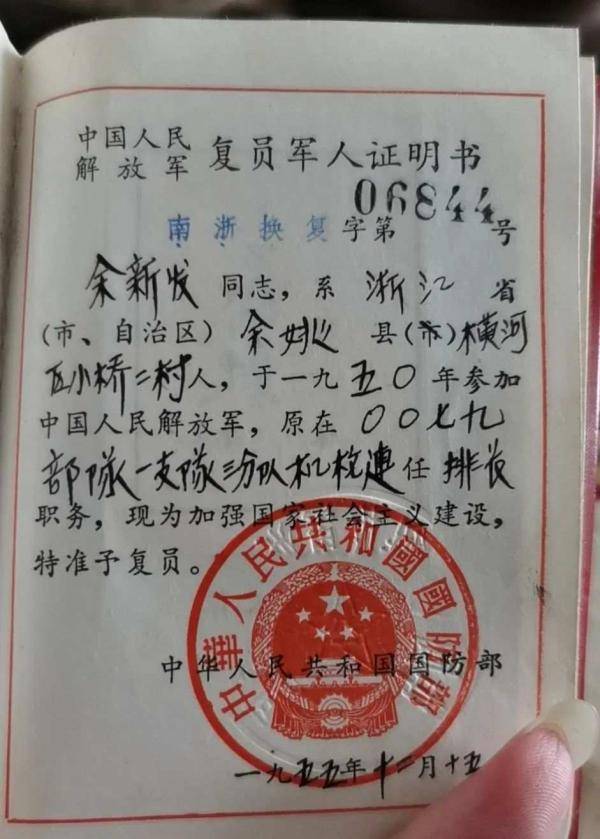 中国人民
解放军 复员军人证明书
南浙换复字第06844号
余新发同志，系浙江省
(市、自治区)余姚县(市)横河
区小桥二村人，于一九五〇年参加
中国人民解放军，原在〇〇七九
部隊一支隊三分队机枪連任排长
职务，现为加强国家社会主义建设，
特准予复员。
中華人民共和國國防部
中华人民共和国国防部
一九五五年十二月十五